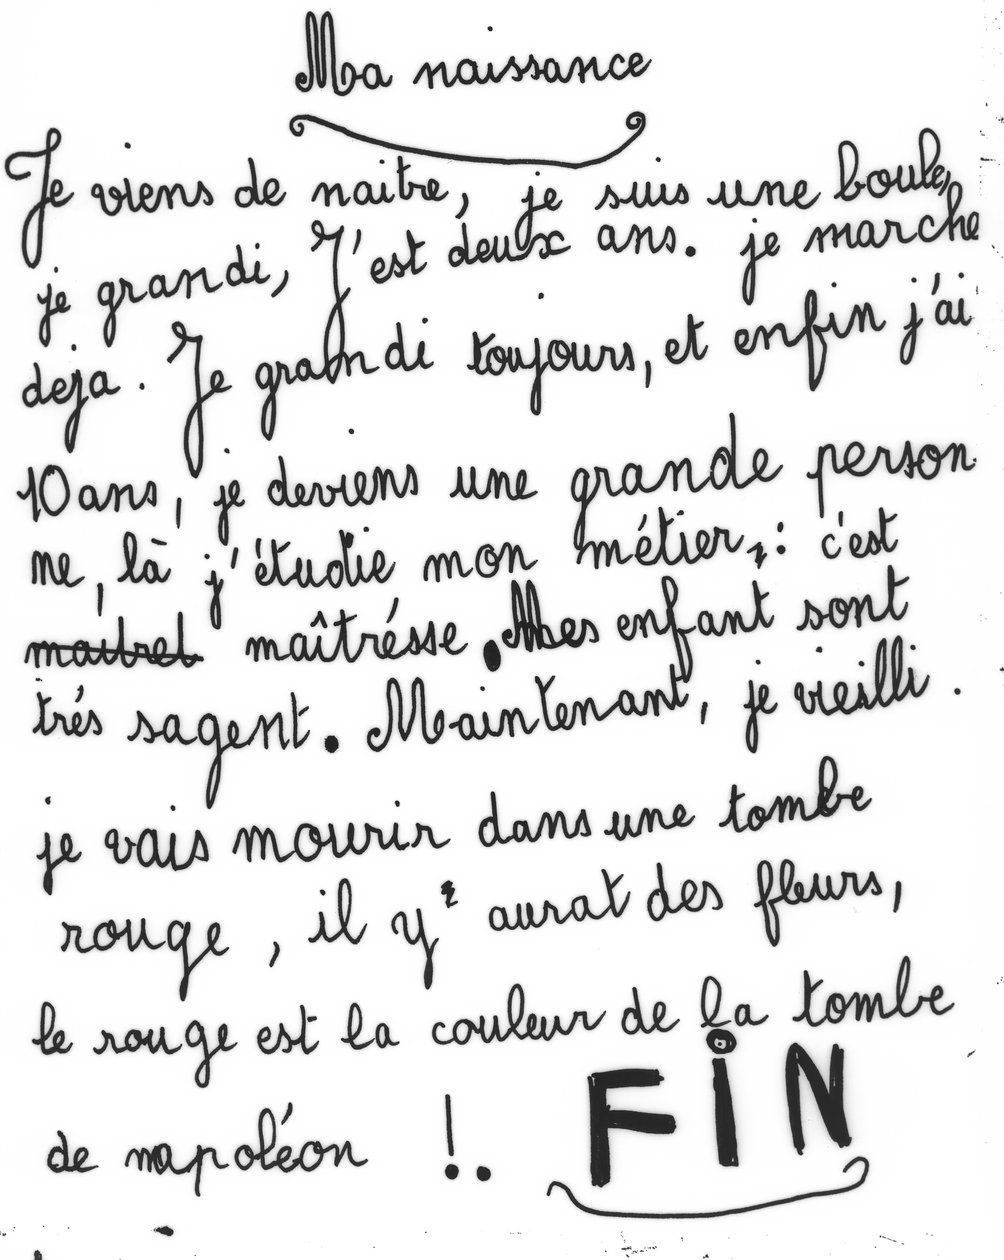 Ma naissance
Je viens de naitre, je suis une boule,
je grandi, J'est deux ans. je marche
deja. Je grandi toujours, et enfin j'ai
10 ans, je deviens une grande person
ne, là j'étudie mon métier, : c'est
maitrel maîtrésse. Mes enfant sont
trés sagent. Maintenant, je vieilli.
je vais mourir dans une tombe
rouge, il y aurat des fleurs,
le rouge est la couleur de la tombe
de napoléon !. FIN